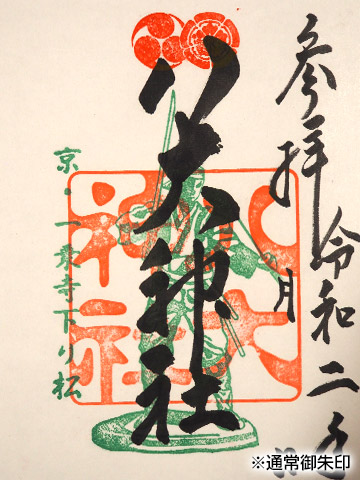 参拝 令和二年
月
八大神社
八大神社
京・一乗寺下り松
※通常御朱印